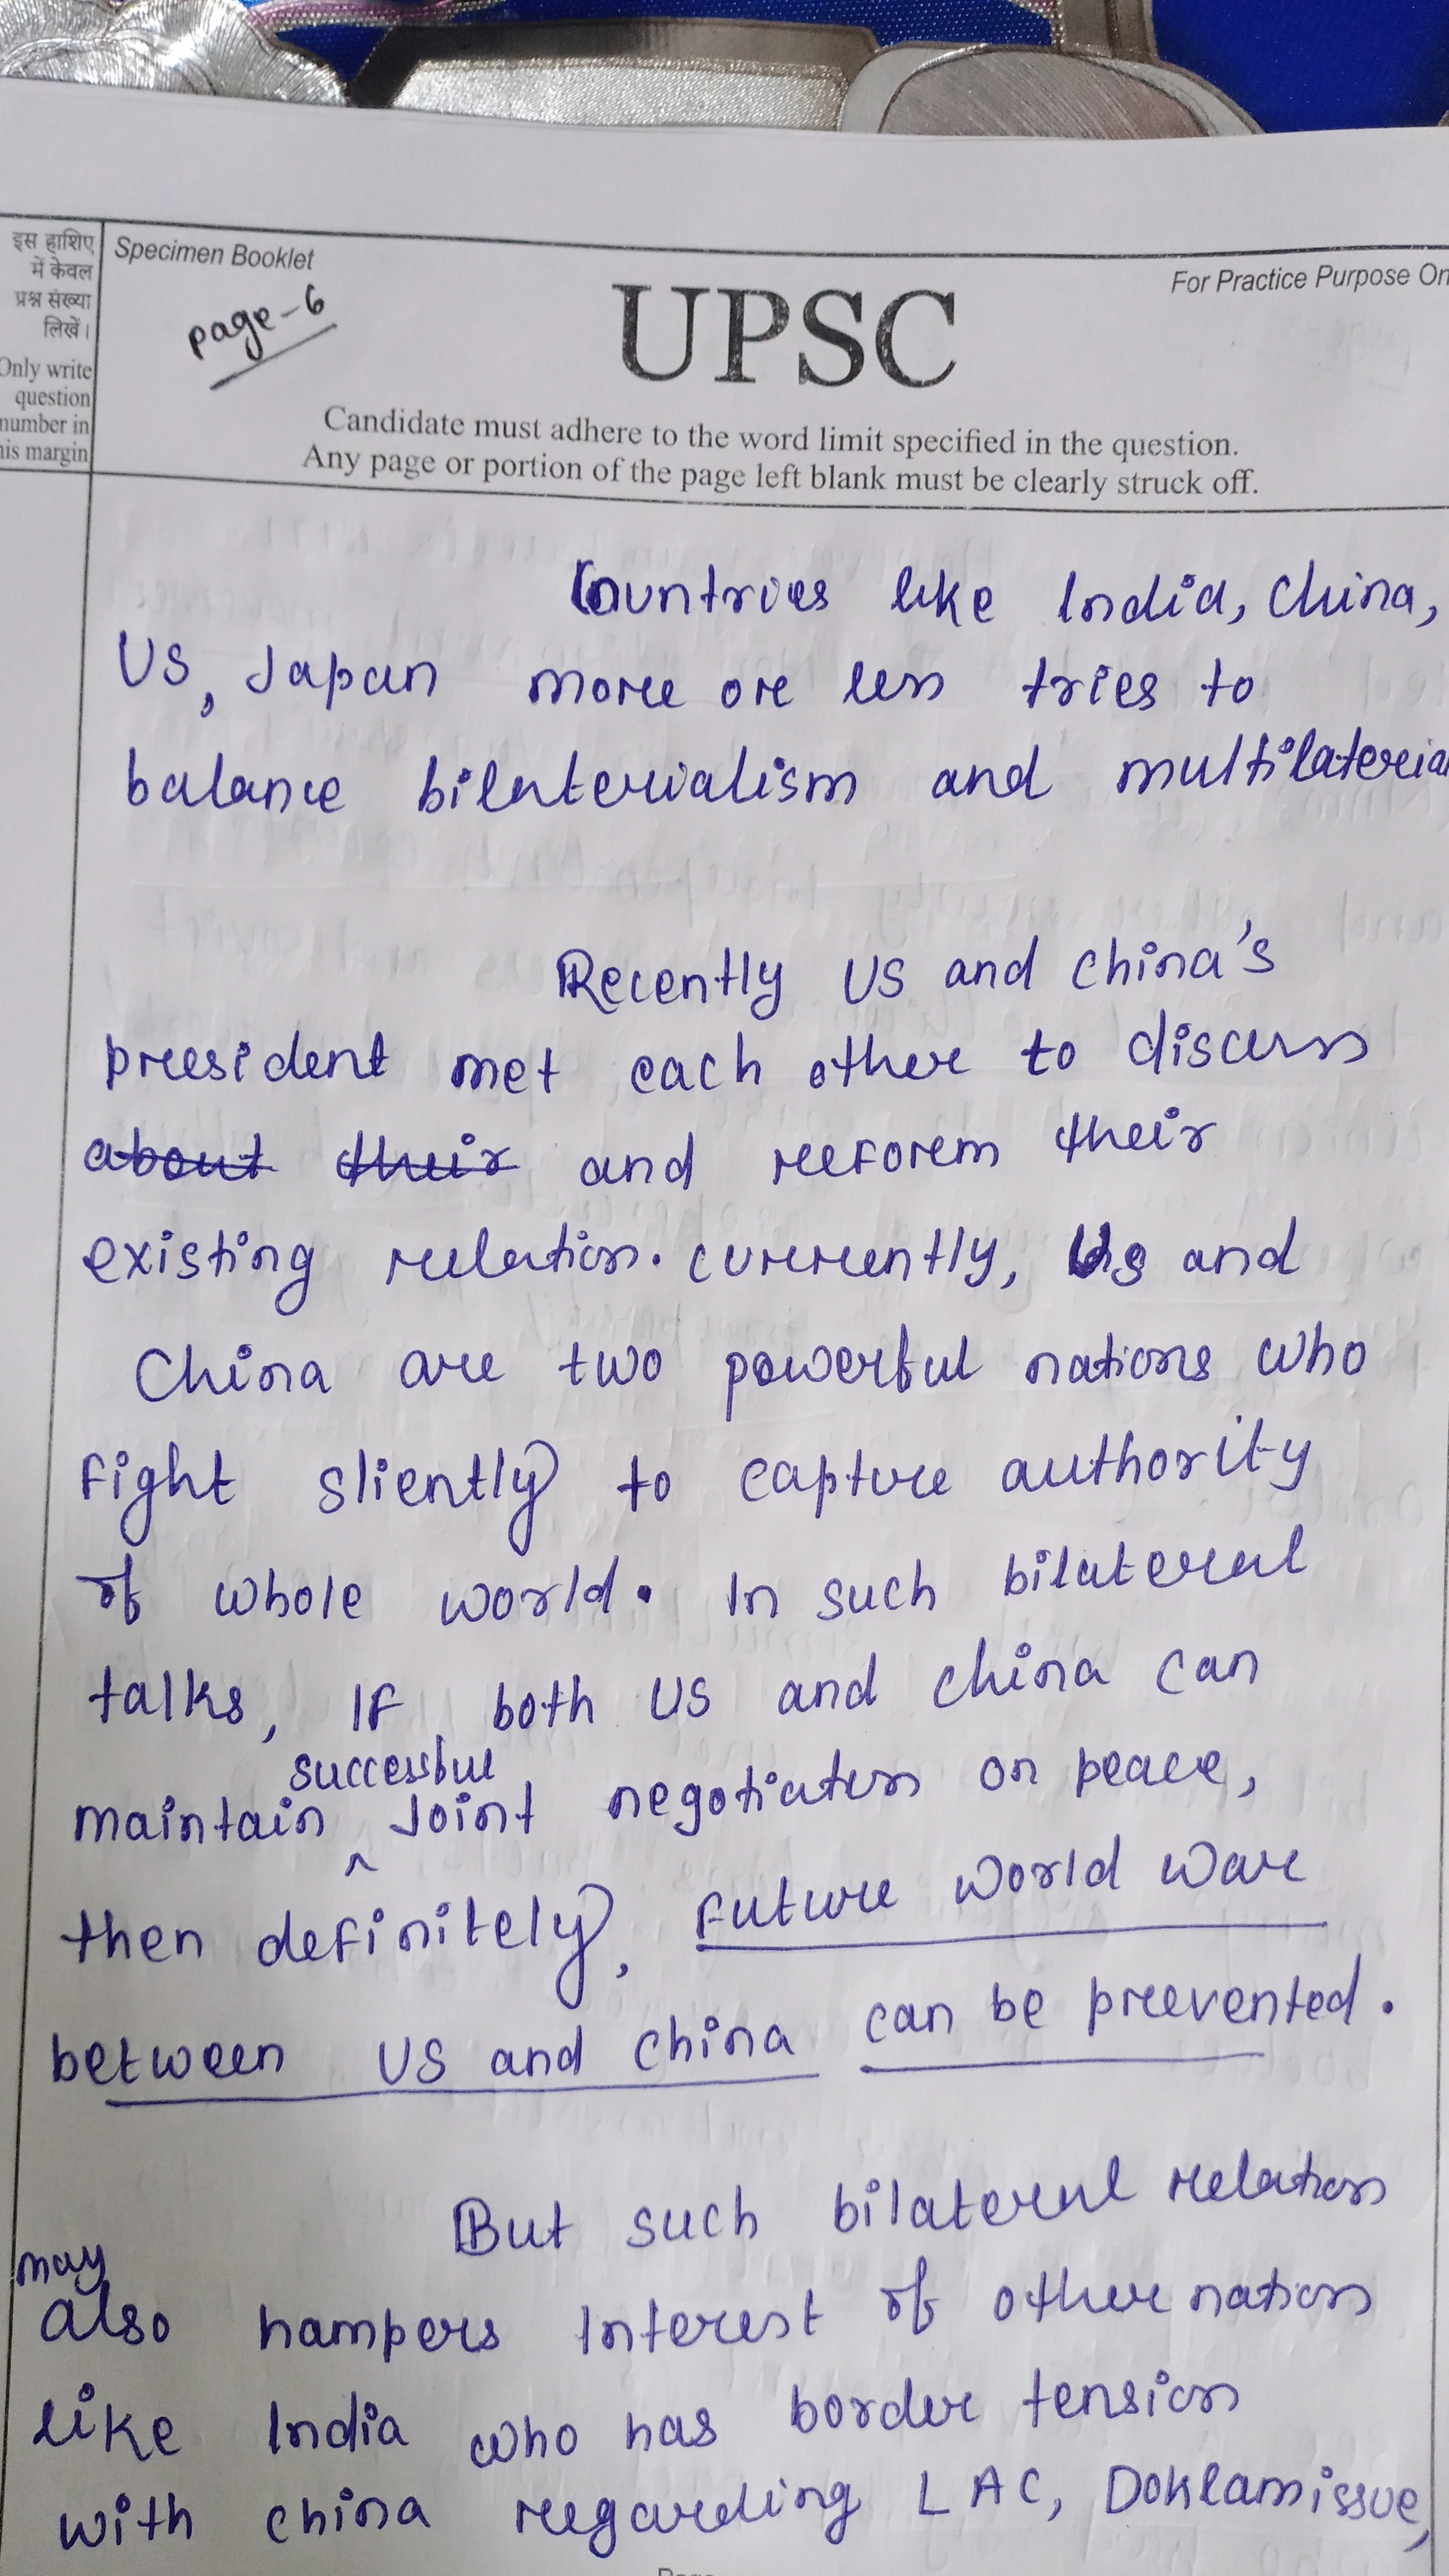 इस हाशिए
में केवल
प्रश्न संख्या
लिखें।
Only write
question
number in
his margin
Specimen Booklet
page-6
UPSC
For Practice Purpose On
Candidate must adhere to the word limit specified in the question.
Any page or portion of the page left blank must be clearly struck off.
Countries like India, China,
US, Japan more or less tries to
balance bilaterialism and multilateria
Recently US and China's
president met each other to discuss
about their and reform their
existing relation. currently, US and
China are two powerful nations who
fight sliently to capture authority
of whole world. In such bilateral
talks, If both US and china can
successful
maintain ^ Joint negotiation on peace,
then definitely, future world war
between US and China can be prevented.
But such bilateral relation
may
also hampers interest of other nation
like India who has border tension
with china regarding LAC, Doklam issue,